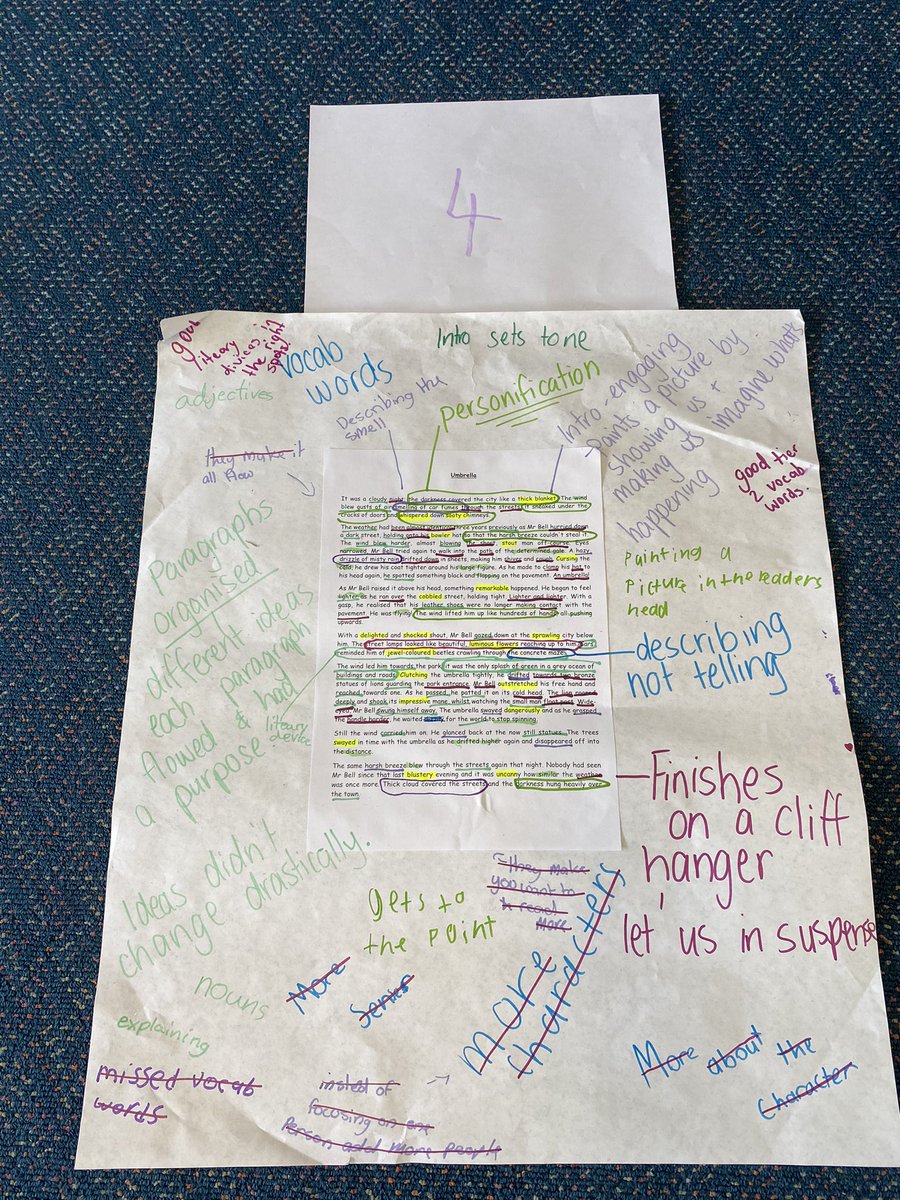 4
good
literary
divices in
the right
spots!
vocab
words
Intro sets tone
adjectives
Describing the
smell
personification
Intro engaging
paints a picture by
showing us +
making us imagine whats
happening
they make it
all flow
good tier
2 vocab
words.
Painting a
Picture in the readers
head
describing
not telling
Paragraphs
organised
different ideas
each paragraph
flowed & had
a purpose
literary
device
Umbrella
It was a cloudy night; the darkness covered the city like a thick blanket. The wind
blew gusts of air smelling of car fumes through the streets; it sneaked under the
cracks of doors and whispered down sooty chimneys.
The weather had been almost identical three years previously as Mr Bell hurried down
a dark street, holding onto his bowler hat so that the harsh breeze couldn't steal it.
The wind blew harder, almost blowing the short, stout man off course. Eyes
narrowed, Mr Bell tried again to walk into the path of the determined gale. A hazy
drizzle of misty rain drifted down in sheets, making him shiver and cough. Cursing the
cold, he drew his coat tighter around his large figure. As he made to clamp his hat to
his head again, he spotted something black and flapping on the pavement. An umbrella!
As Mr Bell raised it above his head, something remarkable happened. He began to feel
lighter as he ran over the cobbled street, holding tight. Lighter and lighter. With a
gasp, he realised that his leather shoes were no longer making contact with the
pavement. He was flying! The wind lifted him up like hundreds of hands all pushing
upwards.
With a delighted and shocked shout, Mr Bell gazed down at the sprawling city below
him. The street lamps looked like beautiful, luminous flowers reaching up to him. Cars
reminded him of jewel-coloured beetles crawling through the concrete maze.
The wind led him towards the park; it was the only splash of green in a grey ocean of
buildings and roads. Clutching the umbrella tightly, he drifted towards two bronze
statues of lions guarding the park entrance. Mr Bell outstretched his free hand and
reached towards one. As he passed, he patted it on its cold head. The lion roared
deeply and shook its impressive mane, whilst watching the small man float past. Wide-
eyed, Mr Bell swung himself away. The umbrella swayed dangerously and as he grasped
the handle harder, he waited dizzily for the world to stop spinning.
Still the wind carried him on. He glanced back at the now still statues. The trees
swayed in time with the umbrella as he drifted higher again and disappeared off into
the distance.
The same harsh breeze blew through the streets again that night. Nobody had seen
Mr Bell since that last blustery evening and it was uncanny how similar the weather
was once more. Thick cloud covered the streets and the darkness hung heavily over
the town.
Finishes
on a cliff
hanger
let us in suspense
Ideas didn't
change drastically.
they make
you want to
read
More
gets to
the point
nouns
More
Senies
more
characters
explaining
missed vocab
words
instead of
focusing on one
Person add more people
More about the
Character